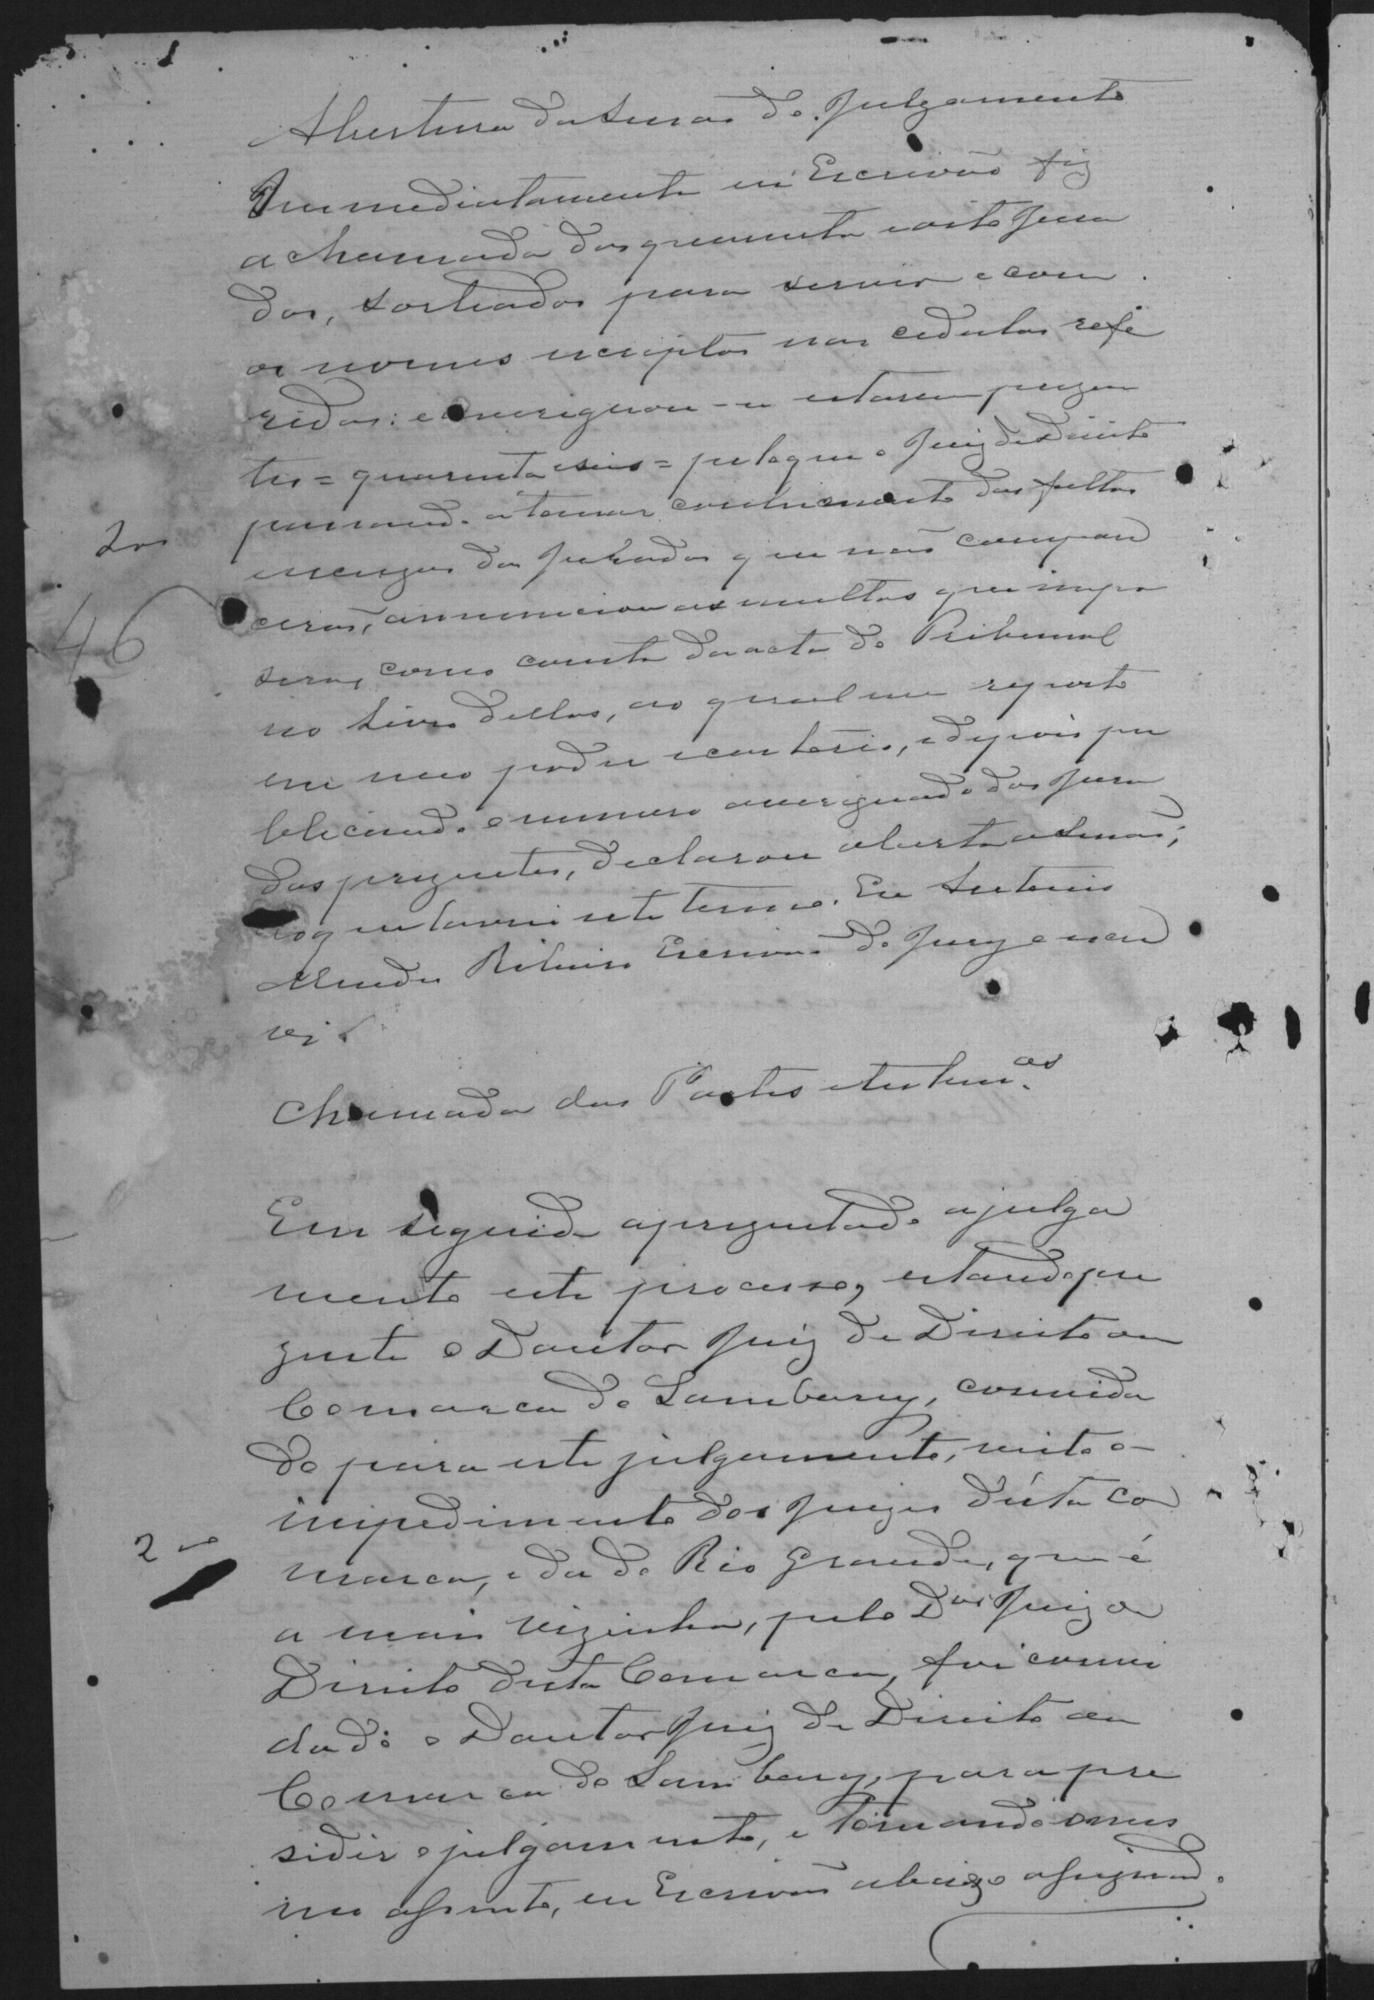 Abertura da sessão do Julgamento
Immediatamente eu Escrivão fiz
a chamada dos quarenta e oito jura
dos, sorteados para servir e com
os nomes escriptos nas cedulas refe
ridas: e averiguou-se estarem prezen
tes = quarenta e seis = pelo que o Juiz de Direito
passando a tomar conhecimento das faltas
e escuzas dos Jurados que não compare
cerão, annunciou as multas que impo
sera, como consta da acta do Tribunal
no livro dellas, ao qual me reporto
em meo poder e cartorio, e depois pu
blicando o numero averiguado dos jura
dos prezentes, declarou aberta a sessão;
do que lavrei este termo. Eu Antonio
Mendes Ribeiro Escrivão do Jury o escre
vi.
2as
46
Chamada das Partes e testem.as
Em seguida aprezentado a julga
mento este processo, estando pre
zente o Doutor Juiz de Direito da
Comarca do Lambary, convida
do para este julgamento, visto o
impedimento dos Juizes d'esta co
marca, e da do Rio Grande, que é
a mais vizinha, pelo Dor Juiz de
Direito desta Comarca, foi convi
dado o Doutor Juiz de Direito da
Comarca do Lambary, para pre
sidir o julgamento, e tomando o mes
mo assento, eu Escrivão abaixo assignado
2as